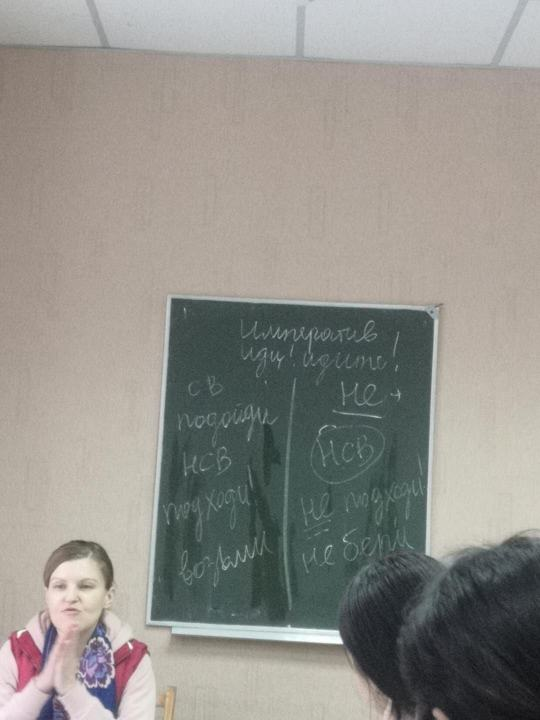 Императив
иди! идите!
св
подойди
нсв
подходи!
возьми
не +
нсв
не подходи!
не бери